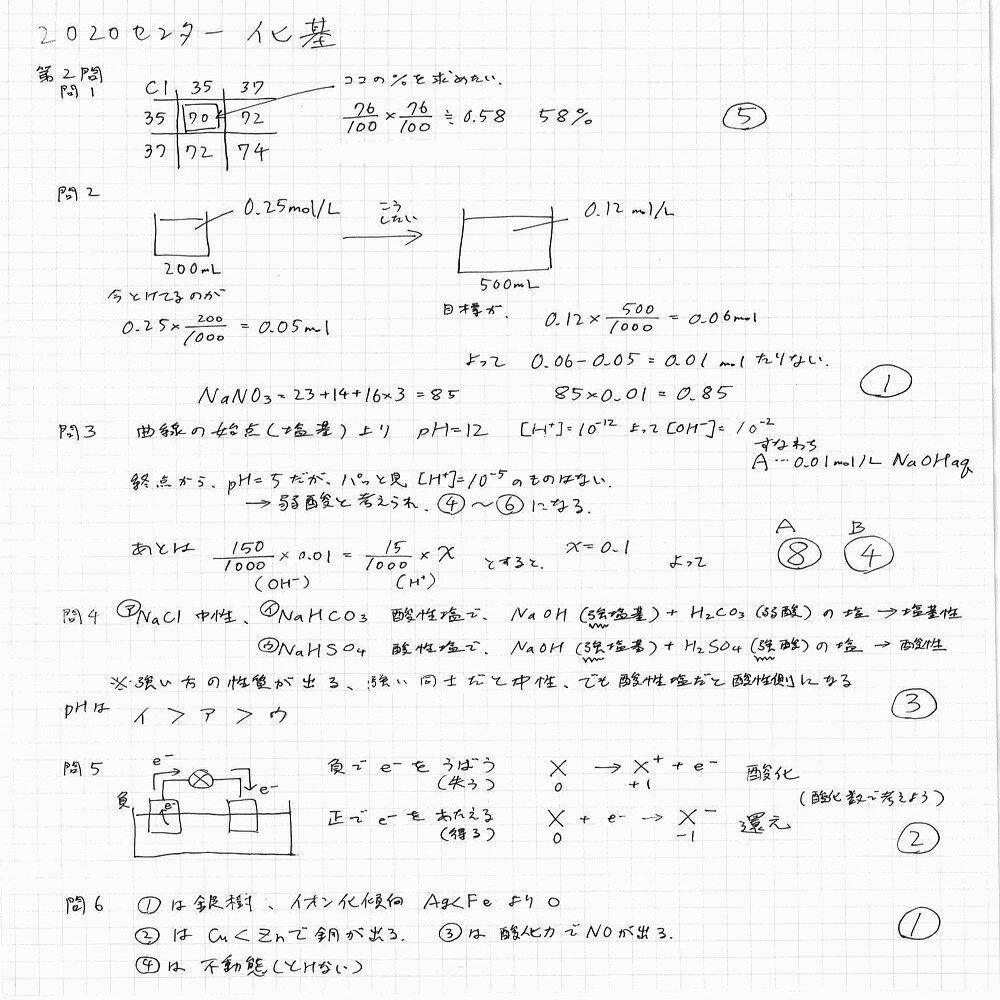 2020センター 化基
第2問
問1
Cl 35 37
35 70 72
37 72 74
ココの%を求めたい.
76/100 × 76/100 ≒ 0.58 58%
⑤
問2
0.25mol/L
200mL
こう
したい
0.12 mol/L
500mL
今とけてるのが
0.25×200/1000 = 0.05mol
目標が、
0.12×500/1000 = 0.06mol
よって 0.06-0.05=0.01 mol たりない.
NaNO₃=23+14+16×3=85 85×0.01=0.85
①
問3 曲線の始点(塩基)より pH=12 [H⁺]=10⁻¹² よって[OH⁻]=10⁻²
すなわち
A…0.01mol/L NaOHaq
終点から、pH=5だが、パッと見[H⁺]=10⁻⁵のものはない.
→弱酸と考えられ、④〜⑥になる.
あとは 150/1000 × 0.01 = 15/1000 × x とすると、 x=0.1 よって
(OH⁻) (H⁺)
A B
⑧ ④
問4 ㋐NaCl 中性、㋑NaHCO₃ 酸性塩で、NaOH(強塩基)+H₂CO₃(弱酸)の塩→塩基性
㋒NaHSO₄ 酸性塩で、NaOH(強塩基)+H₂SO₄(強酸)の塩→酸性
※強い方の性質が出る、強い同士だと中性、でも酸性塩だと酸性側になる
pHは イ > ア > ウ
③
問5
e⁻
e⁻
負
e⁻
負で e⁻を うばう X → X⁺ + e⁻ 酸化
(失う) 0 +1
(酸化数で考えよう)
正で e⁻を あたえる X + e⁻ → X⁻ 還元
(得る) 0 -1
②
問6 ①は銀樹、イオン化傾向 Ag<Feより○
②は Cu<Znで銅が出る. ③は 酸化力でNOが出る.
④は 不動態(とけない)
①